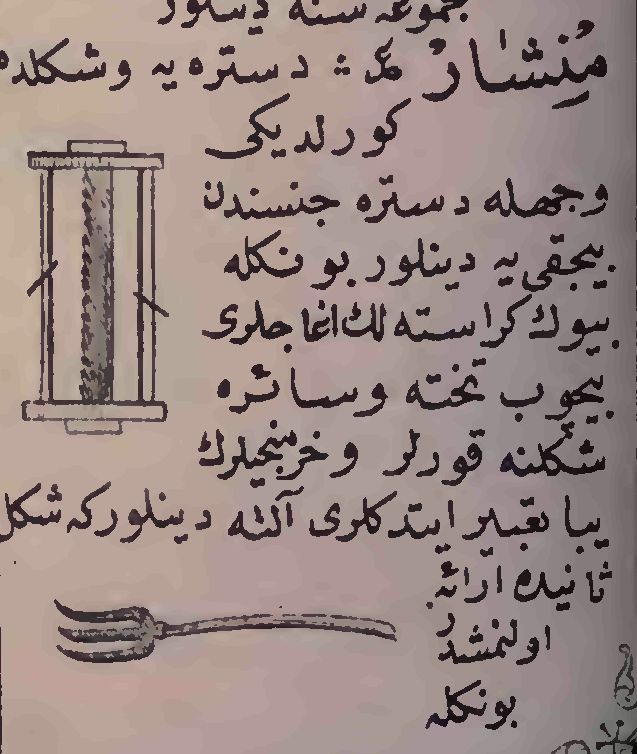 مجموعه سنه دینلور
مُنِشَارْ ع : دستره یه وشکلده
کورلدیکی
وجمله دستره جنسندن
بیجقی یه دینلور بونکله
بیوك کراسته لك اغاجلری
بیچوب تخته وسائره
شکلنه قورلر وخرمنجیلرك
یبا تعبیر ایتدکلری آلته دینلورکه شکل
ثانیده ارائه
اولنمشدر
بونکله